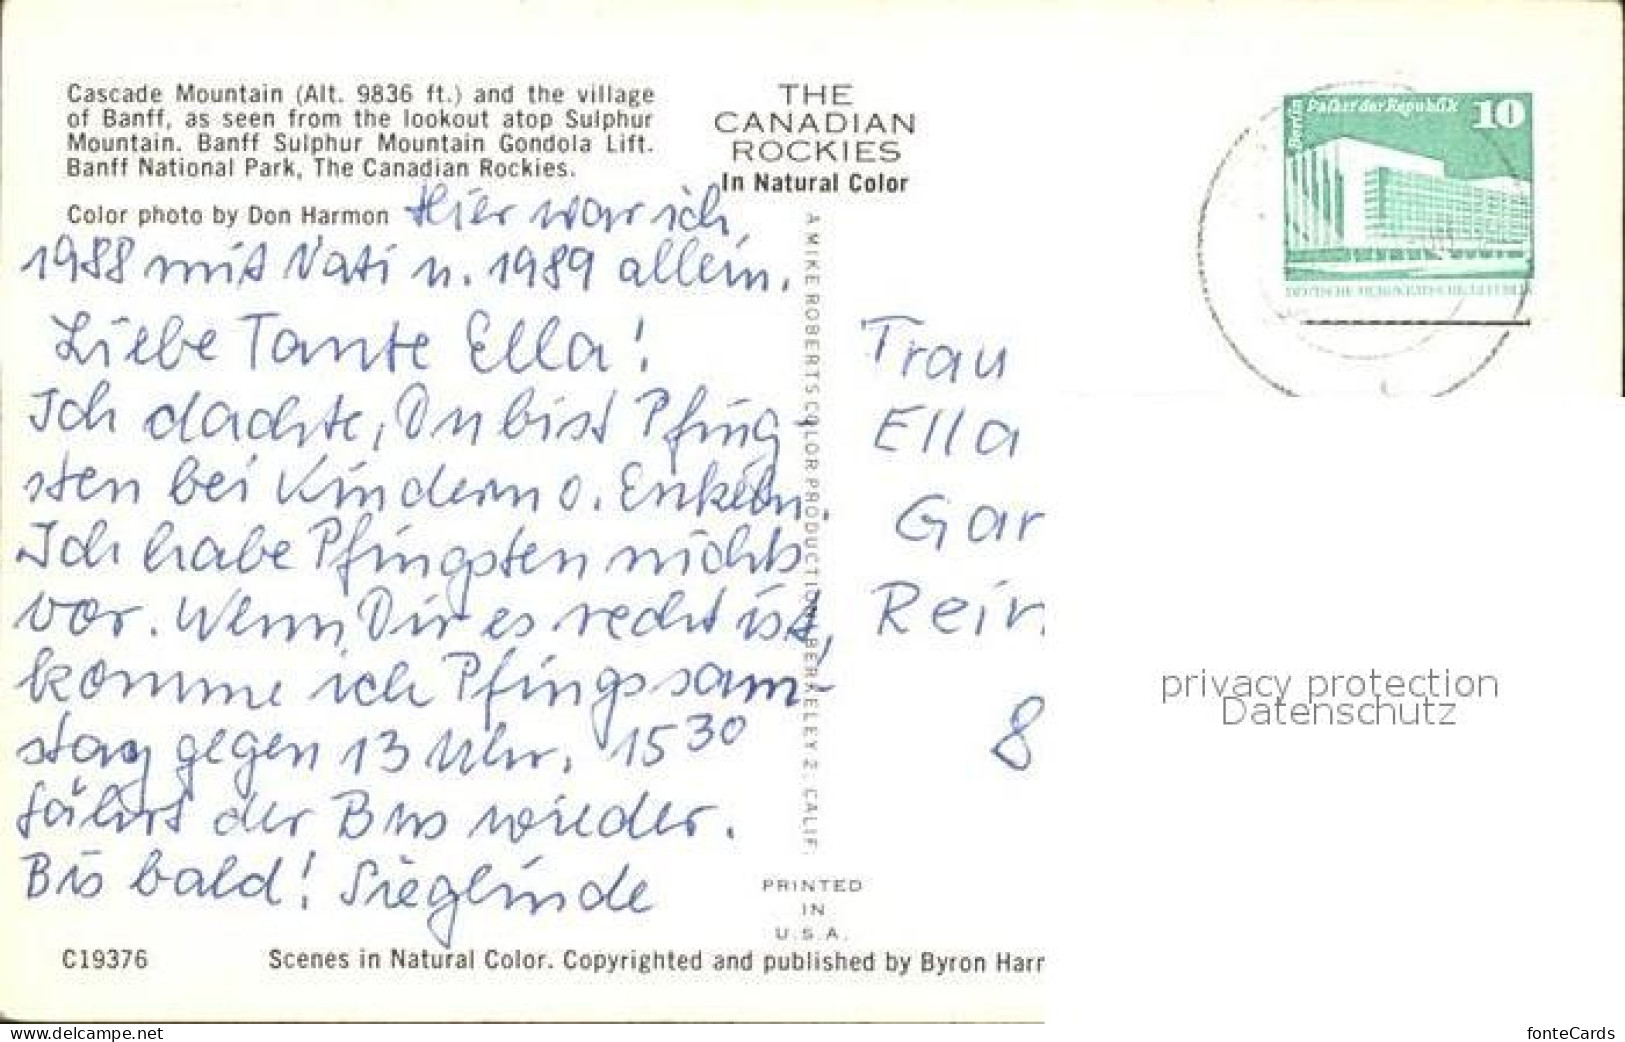 Cascade Mountain (Alt. 9836 ft.) and the village
of Banff, as seen from the lookout atop Sulphur
Mountain. Banff Sulphur Mountain Gondola Lift.
Banff National Park, The Canadian Rockies.
Color photo by Don Harmon
THE
CANADIAN
ROCKIES
In Natural Color
Hier war ich
1988 mit Vati u. 1989 allein.
Liebe Tante Ella!
Ich dachte, Du bist Pfing-
sten bei Kindern o. Enkeln.
Ich habe Pfingsten nichts
vor. Wenn Dir es recht ist,
komme ich Pfingssam-
stag gegen 13 Uhr. 15 30
fährt der Bus wieder.
Bis bald! Sieglinde
A MIKE ROBERTS COLOR PRODUCTION, BERKELEY 2, CALIF.
PRINTED
IN
U.S.A.
C19376
Scenes in Natural Color. Copyrighted and published by Byron Harr
Berlin
Palast der Republik
10
Frau
Ella
Gar
Rein
8
privacy protection
Datenschutz
www.delcampe.net
fonteCards